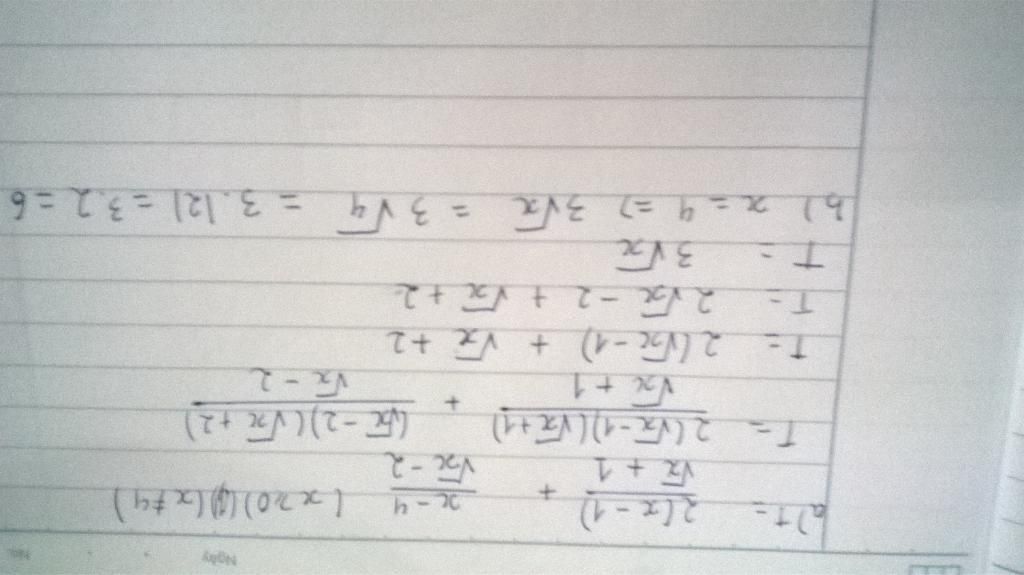 Ngày No.
a) T = 2(x-1)/(√x + 1) + (x-4)/(√x - 2) (x ≥ 0) (x ≠ 4)
T = 2(√x-1)(√x+1)/(√x + 1) + (√x-2)(√x+2)/(√x - 2)
T = 2(√x-1) + √x + 2
T = 2√x - 2 + √x + 2
T = 3√x
b) x = 4 => 3√x = 3√4 = 3.|2| = 3.2 = 6